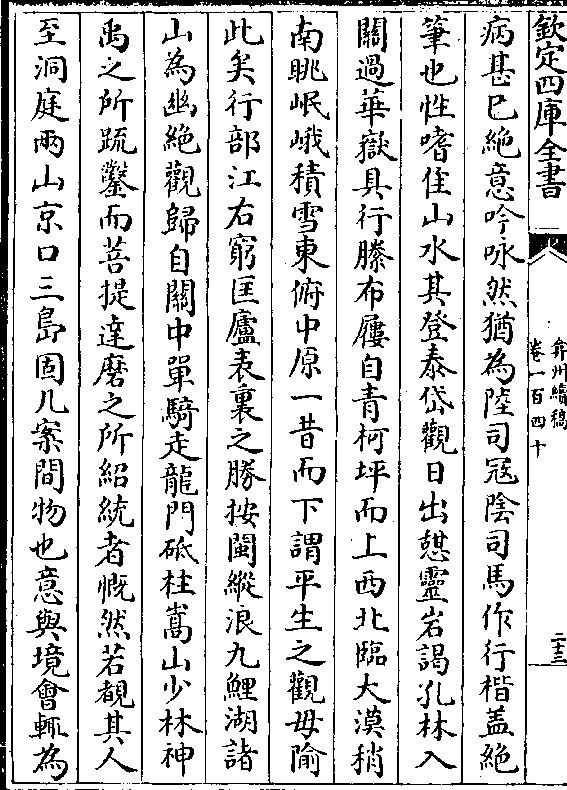 欽定四庫全書
弇州續稿
卷一百四十
二十三
病甚已絶意吟咏然猶為陸司冦陰司馬作行楷盖絶
筆也性嗜佳山水其登泰岱觀日出憇靈岩謁孔林入
關過華嶽具行縢布屨自青柯坪而上西北臨大漠稍
南眺岷峨積雪東俯中原一昔而下謂平生之觀毋隃
此矣行部江右窮匡廬表裏之勝按閩縱浪九鯉湖諸
山為幽絶觀歸自關中單騎走龍門砥柱嵩山少林神
禹之所䟽鑿而菩提達磨之所紹統者慨然若覩其人
至洞庭兩山京口三島固几案間物也意與境㑹輒為